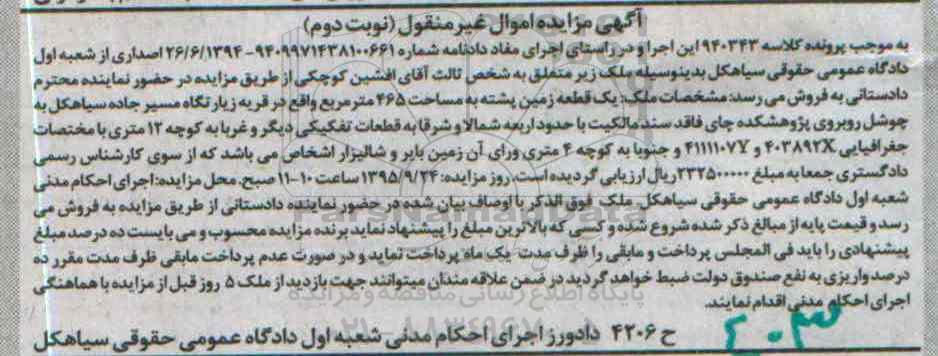 آگهی مزایده اموال غیر منقول (نوبت دوم)
به موجب پرونده کلاسه ۹۴۰۳۴۳ این اجرا و در راستای اجرای مفاد دادنامه شماره ۹۴۰۹۹۷۱۴۳۸۱۰۰۶۶۱-۲۶/۶/۱۳۹۴ اصداری از شعبه اول
دادگاه عمومی حقوقی سیاهکل بدینوسیله ملک زیر متعلق به شخص ثالث آقای افشین کوچکی از طریق مزایده در حضور نماینده محترم
دادستانی به فروش می رسد: مشخصات ملک: یک قطعه زمین پشته به مساحت ۴۶۵ متر مربع واقع در قریه زیارتگاه مسیر جاده سیاهکل به
چوشل روبروی پژوهشکده چای فاقد سند مالکیت با حدود اربعه شمالا و شرقا به قطعات تفکیکی دیگر و غربا به کوچه ۱۲ متری با مختصات
جغرافیایی ۴۰۳۸۹۲X و ۴۱۱۱۱۰۷Y و جنوبا به کوچه ۴ متری ورای آن زمین بایر و شالیزار اشخاص می باشد که از سوی کارشناس رسمی
دادگستری جمعا به مبلغ ۲۳۲۵۰۰۰۰۰ ریال ارزیابی گردیده است. روز مزایده: ۱۳۹۵/۹/۲۴ ساعت ۱۰-۱۱ صبح. محل مزایده: اجرای احکام مدنی
شعبه اول دادگاه عمومی حقوقی سیاهکل. ملک فوق الذکر با اوصاف بیان شده در حضور نماینده دادستانی از طریق مزایده به فروش می
رسد و قیمت پایه از مبالغ ذکر شده شروع شده و کسی که بالاترین مبلغ را پیشنهاد نماید برنده مزایده محسوب و می بایست ده درصد مبلغ
پیشنهادی را باید فی المجلس پرداخت و مابقی را ظرف مدت یک ماه پرداخت نماید و در صورت عدم پرداخت مابقی ظرف مدت مقرر ده
درصد واریزی به نفع صندوق دولت ضبط خواهد گردید در ضمن علاقه مندان میتوانند جهت بازدید از ملک ۵ روز قبل از مزایده با هماهنگی
اجرای احکام مدنی اقدام نمایند.
ح ۴۲۰۶ دادورز اجرای احکام مدنی شعبه اول دادگاه عمومی حقوقی سیاهکل
ParsNamadData
پایگاه اطلاع رسانی مناقصه و مزایده